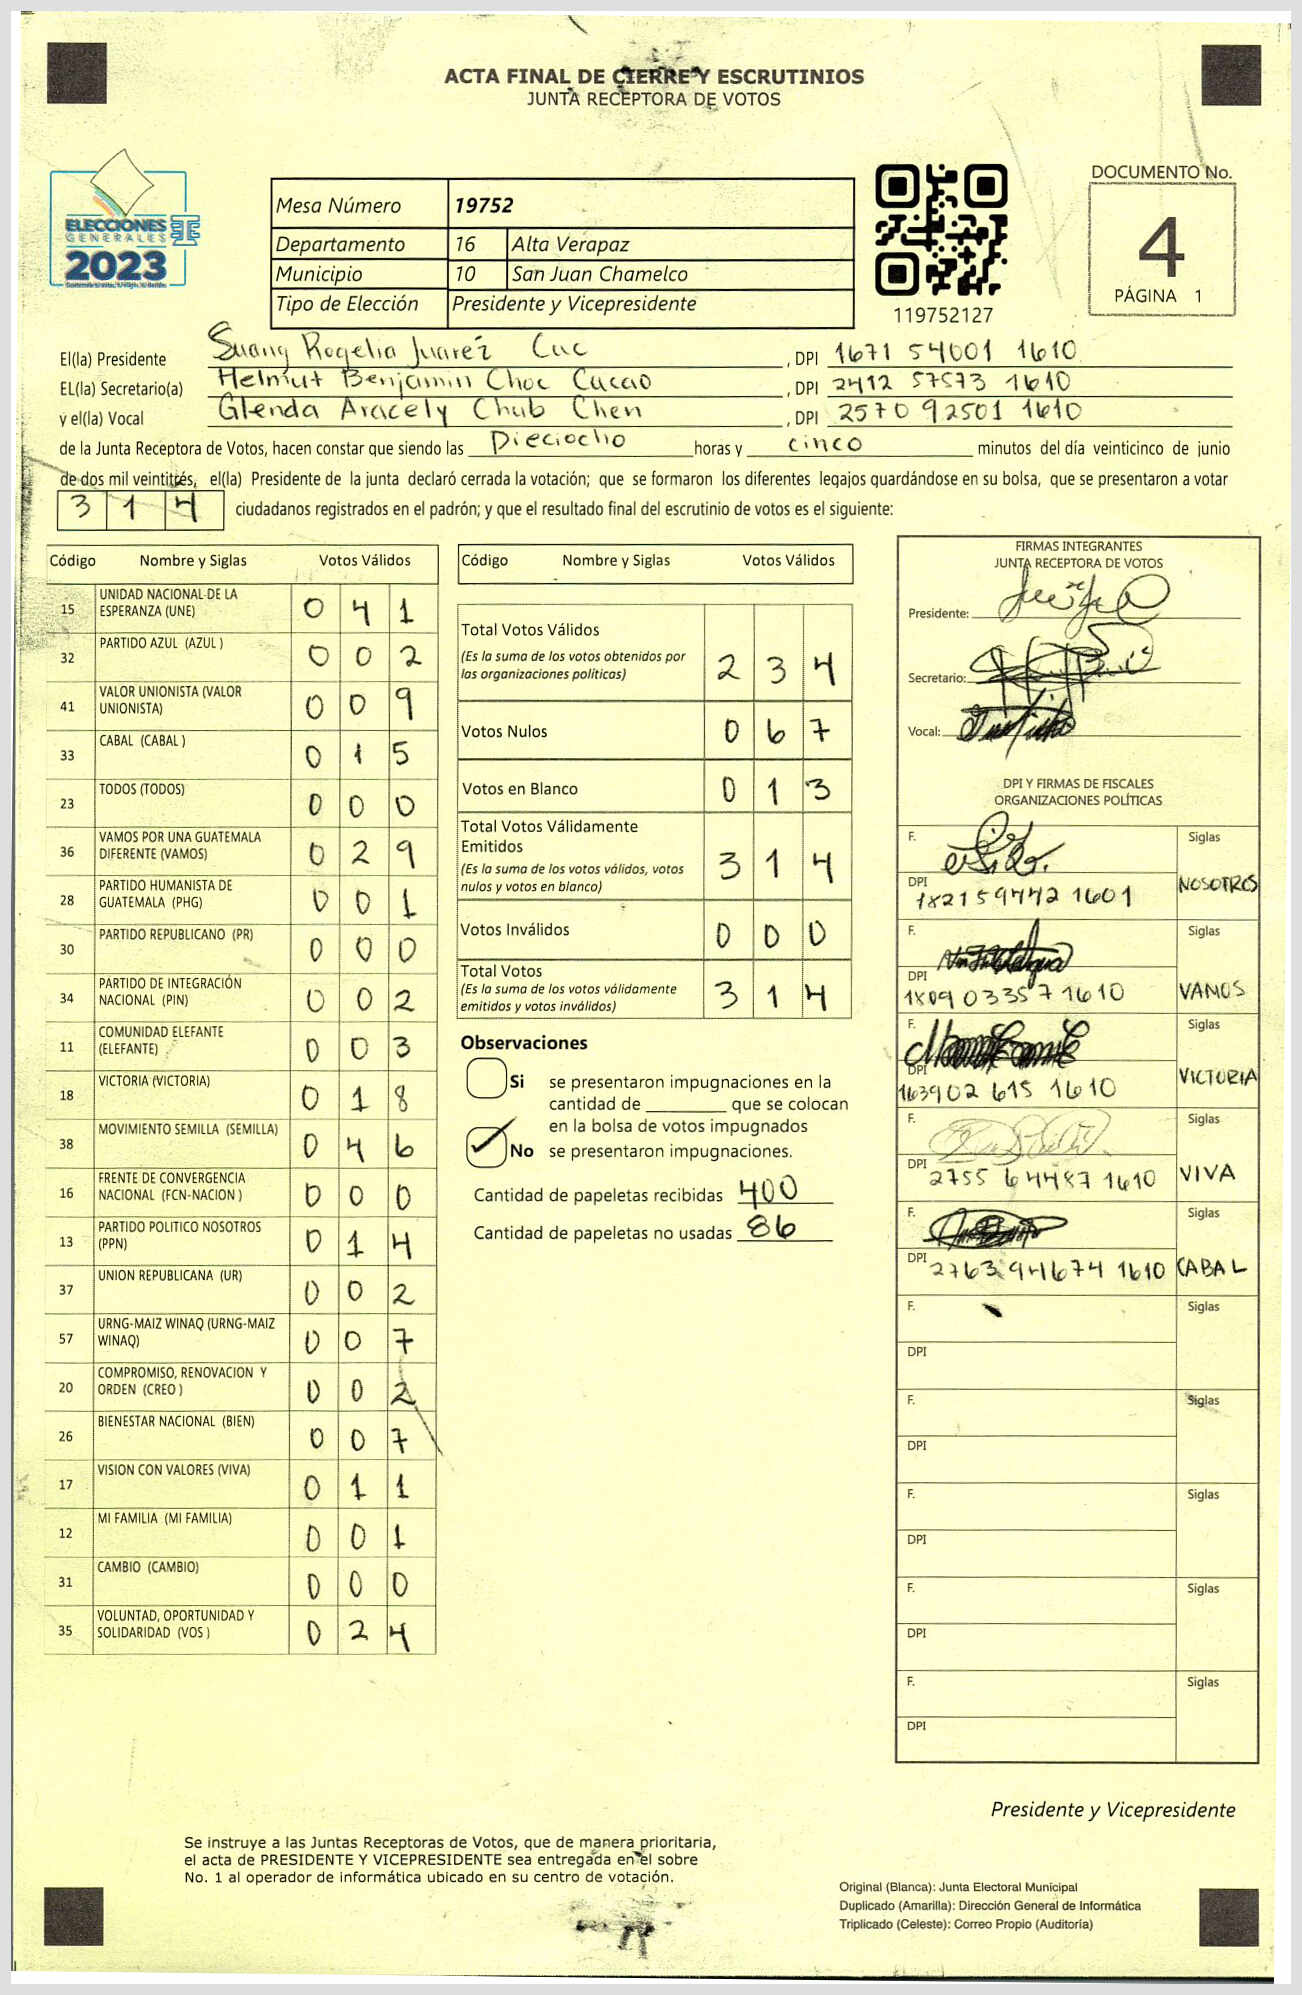 ACTA FINAL DE CIERRE Y ESCRUTINIOS
JUNTA RECEPTORA DE VOTOS
ELECCIONES
GENERALES
2023
Mesa Número 19752
Departamento 16 Alta Verapaz
Municipio 10 San Juan Chamelco
Tipo de Elección Presidente y Vicepresidente
119752127
DOCUMENTO No.
4
PÁGINA 1
El(la) Presidente Suany Rogelia Juarez Cuc, DPI 1671 54001 1610
EL(la) Secretario(a) Helmut Benjamin Choc Cacao, DPI 2412 57573 1610
y el(la) Vocal Glenda Aracely Chub Chen, DPI 2570 92501 1610
de la Junta Receptora de Votos, hacen constar que siendo las Dieciocho horas y cinco minutos del día veinticinco de junio
de dos mil veintitrés, el(la) Presidente de la junta declaró cerrada la votación; que se formaron los diferentes legajos guardándose en su bolsa, que se presentaron a votar
314 ciudadanos registrados en el padrón; y que el resultado final del escrutinio de votos es el siguiente:
Código Nombre y Siglas Votos Válidos
15 UNIDAD NACIONAL DE LA ESPERANZA (UNE) 0 4 1
32 PARTIDO AZUL (AZUL ) 0 0 2
41 VALOR UNIONISTA (VALOR UNIONISTA) 0 0 9
33 CABAL (CABAL ) 0 1 5
23 TODOS (TODOS) 0 0 0
36 VAMOS POR UNA GUATEMALA DIFERENTE (VAMOS) 0 2 9
28 PARTIDO HUMANISTA DE GUATEMALA (PHG) 0 0 1
30 PARTIDO REPUBLICANO (PR) 0 0 0
34 PARTIDO DE INTEGRACIÓN NACIONAL (PIN) 0 0 2
11 COMUNIDAD ELEFANTE (ELEFANTE) 0 0 3
18 VICTORIA (VICTORIA) 0 1 8
38 MOVIMIENTO SEMILLA (SEMILLA) 0 4 6
16 FRENTE DE CONVERGENCIA NACIONAL (FCN-NACION ) 0 0 0
13 PARTIDO POLITICO NOSOTROS (PPN) 0 1 4
37 UNION REPUBLICANA (UR) 0 0 2
57 URNG-MAIZ WINAQ (URNG-MAIZ WINAQ) 0 0 7
20 COMPROMISO, RENOVACION Y ORDEN (CREO ) 0 0 2
26 BIENESTAR NACIONAL (BIEN) 0 0 7
17 VISION CON VALORES (VIVA) 0 1 1
12 MI FAMILIA (MI FAMILIA) 0 0 1
31 CAMBIO (CAMBIO) 0 0 0
35 VOLUNTAD, OPORTUNIDAD Y SOLIDARIDAD (VOS ) 0 2 4
Código Nombre y Siglas Votos Válidos
Total Votos Válidos 2 3 4
(Es la suma de los votos obtenidos por
las organizaciones políticas)
Votos Nulos 0 6 7
Votos en Blanco 0 1 3
Total Votos Válidamente
Emitidos 3 1 4
(Es la suma de los votos válidos, votos
nulos y votos en blanco)
Votos Inválidos 0 0 0
Total Votos 3 1 4
(Es la suma de los votos válidamente
emitidos y votos inválidos)
Observaciones
Si se presentaron impugnaciones en la
cantidad de ________ que se colocan
en la bolsa de votos impugnados
No se presentaron impugnaciones.
Cantidad de papeletas recibidas 400
Cantidad de papeletas no usadas 86
FIRMAS INTEGRANTES
JUNTA RECEPTORA DE VOTOS
Presidente:
Secretario:
Vocal:
DPI Y FIRMAS DE FISCALES
ORGANIZACIONES POLÍTICAS
F. Siglas
DPI 1821 59442 1601 NOSOTROS
F. Siglas
DPI 1809 03357 1610 VAMOS
F. Siglas
DPI 163902 615 1610 VICTORIA
F. Siglas
DPI 2755 64487 1610 VIVA
F. Siglas
DPI 2763 94674 1610 CABAL
F. Siglas
DPI
F. Siglas
DPI
F. Siglas
DPI
F. Siglas
DPI
F. Siglas
DPI
Presidente y Vicepresidente
Se instruye a las Juntas Receptoras de Votos, que de manera prioritaria,
el acta de PRESIDENTE Y VICEPRESIDENTE sea entregada en el sobre
No. 1 al operador de informática ubicado en su centro de votación.
Original (Blanca): Junta Electoral Municipal
Duplicado (Amarilla): Dirección General de Informática
Triplicado (Celeste): Correo Propio (Auditoría)